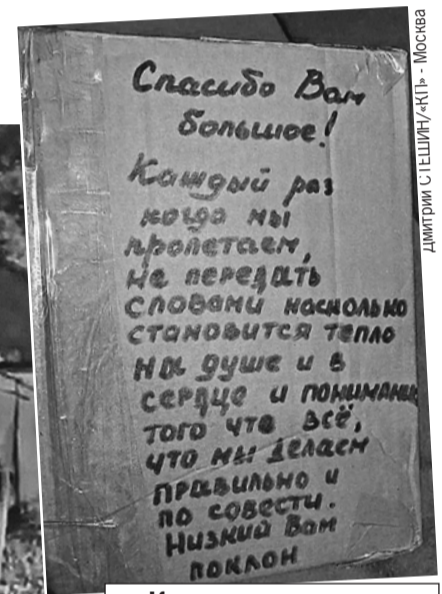 Спасибо Вам
большое!
Каждый раз
когда мы
пролетаем,
не передать
словами насколько
становится тепло
на душе и в
сердце и понимани
того что всё,
что мы делаем
правильно и
по совести.
Низкий Вам
поклон
Дмитрий СТЕШИН/«КП» - Москва